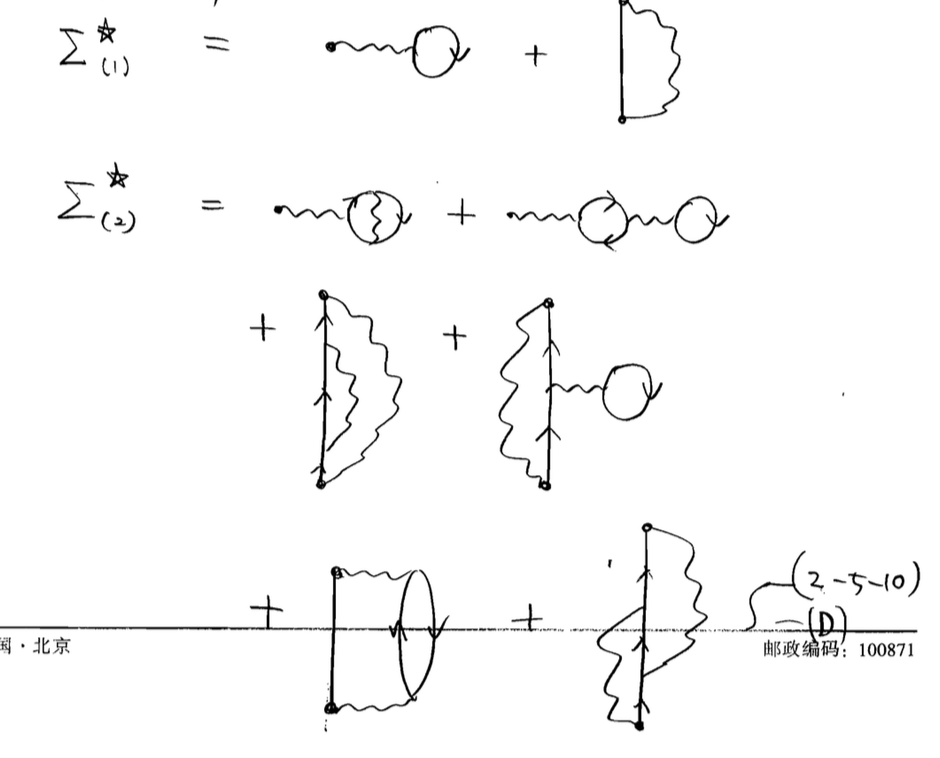 Σ★(1) = +
Σ★(2) = +
+ +
+ + (2-5-10)
-(D)
国·北京 邮政编码：100871